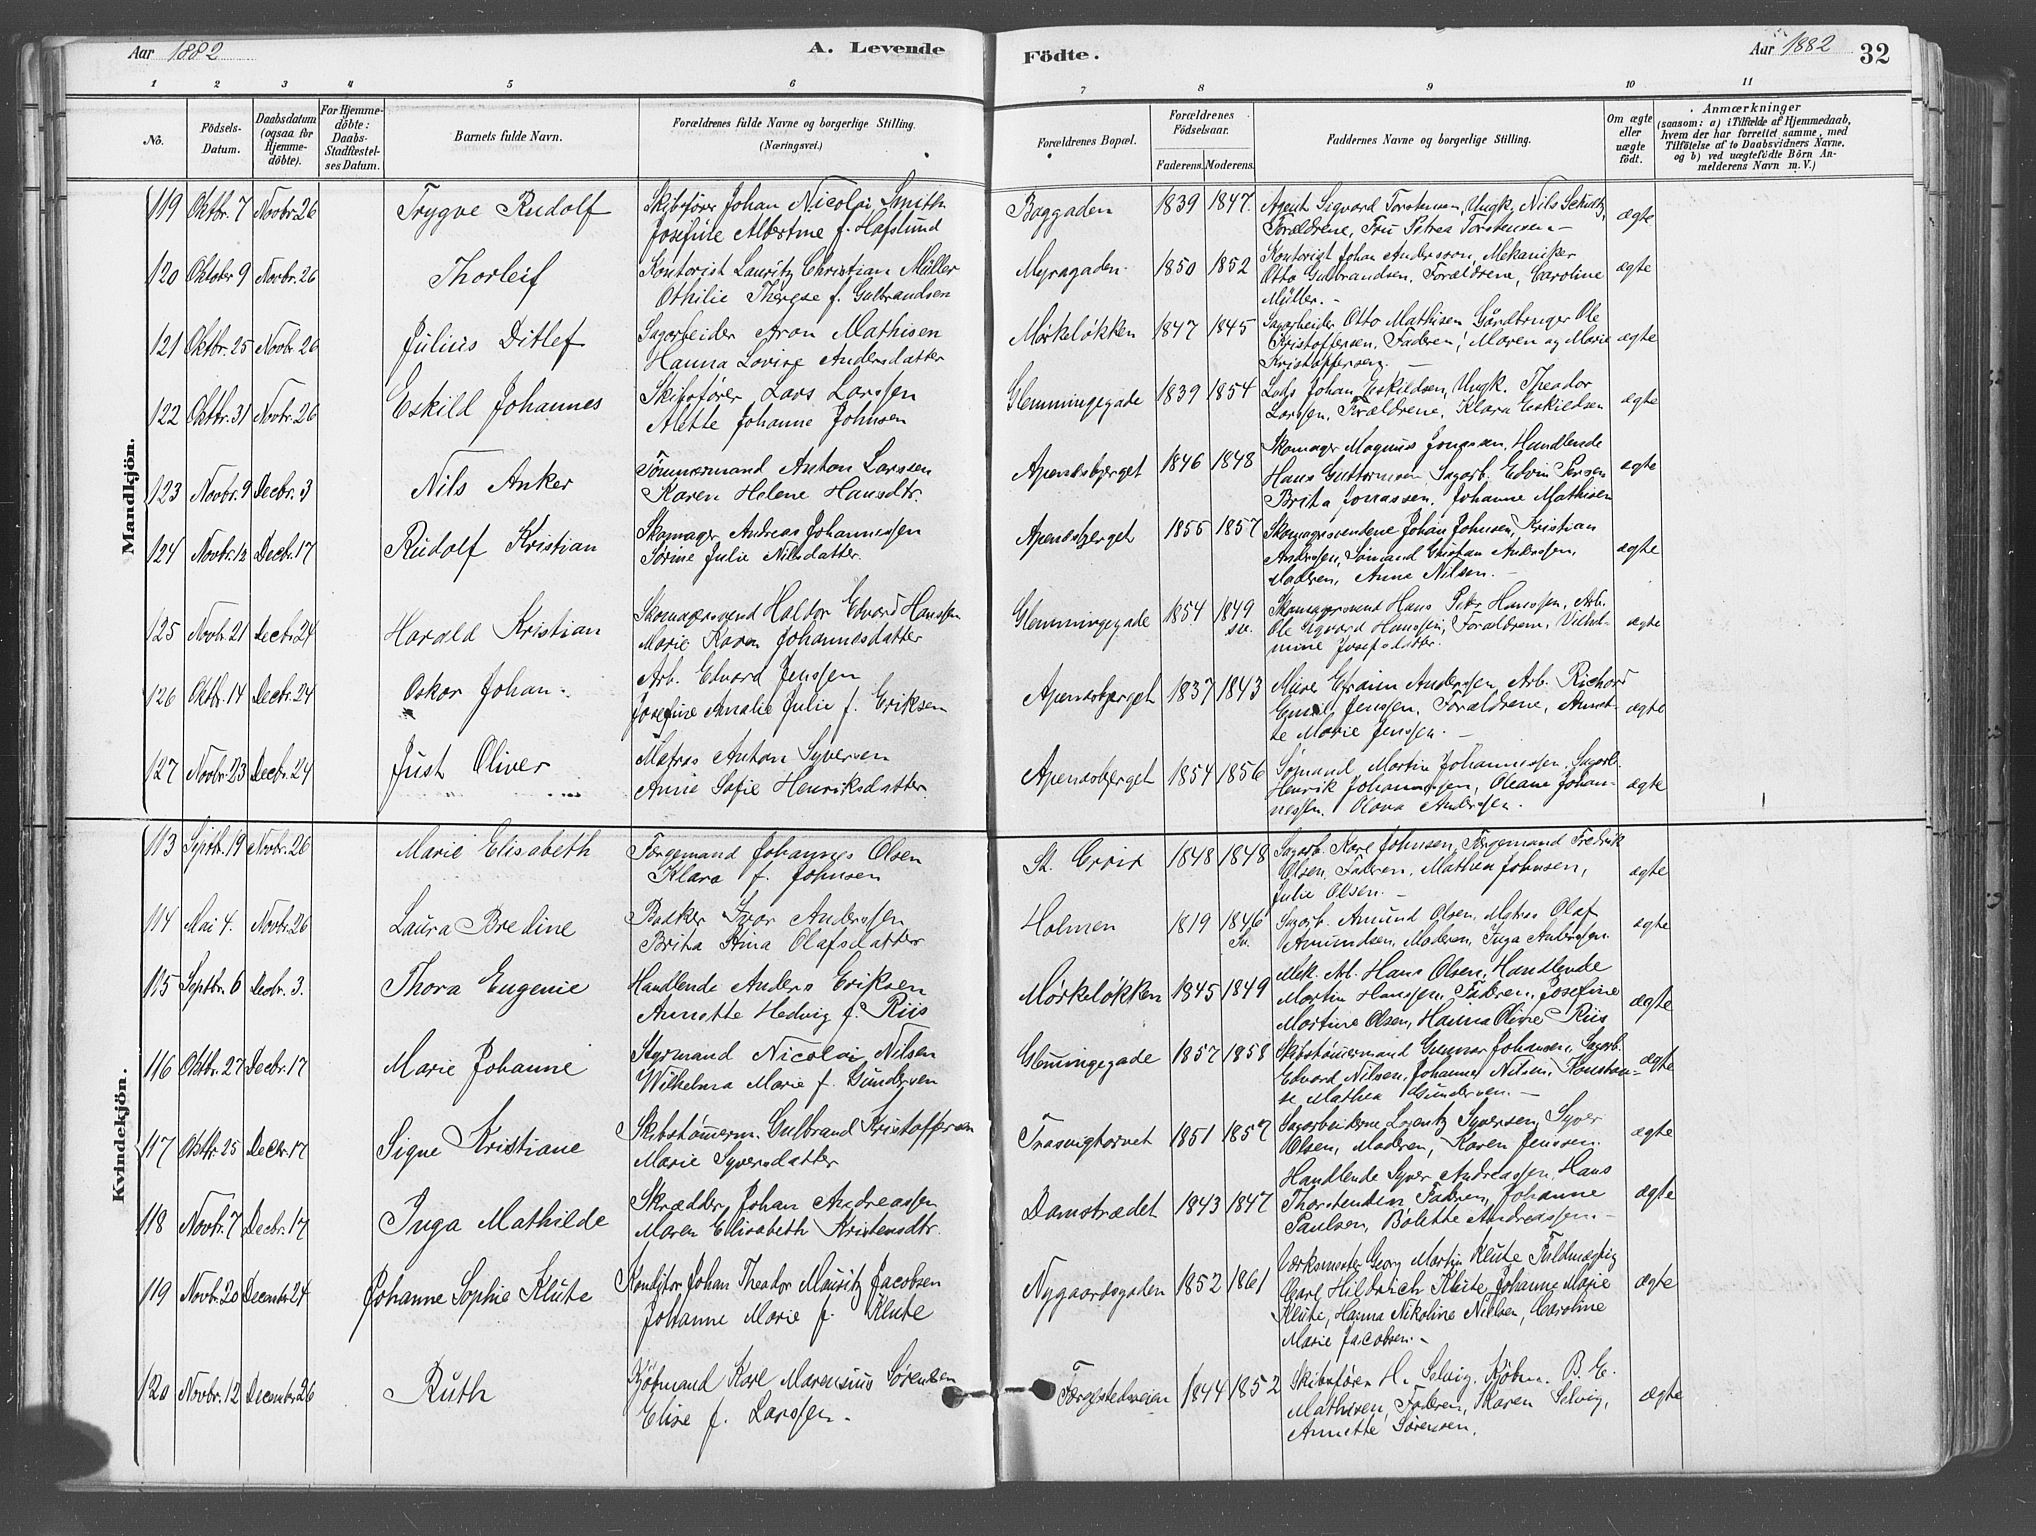 Aar 1882 A. Levende Födte. Aar 1882 32
1 2 3 4 5 6 7 8 9 10 11
No.
Födsels-Datum.
Daabsdatum (ogsaa for Hjemme-döbte).
For Hjemme-döbte: Daabs-Stadfæstel-ses Datum.
Barnets fulde Navn.
Forældrenes fulde Navne og borgerlige Stilling. (Næringsvei.)
Forældrenes Bopæl.
Forældrenes Födselsaar.
Faderens. Moderens.
Faddernes Navne og borgerlige Stilling.
Om ægte eller uægte födt.
Anmærkninger
(saasom: a) i Tilfælde af Hjemmedaab, hvem der har forrettet samme, med Tilföielse af to Daabsvidners Navne, og b) ved uægtefödte Börn An-melderens Navn m. V.)
Mandkjön.
119 Oktbr. 7 Novbr. 26 Trygve Rudolf Skibsfører Johan Nicolai Smith Baggaden 1839 1847. Agent Sigvard Torstensen, Ungk. Nils Schultz,
Josefine Albertine f. Hafslund Forældrene, Fru Petrea Torstensen – ægte
120 Oktober 9 Novbr. 26 Thorleif Kontorist Lauritz Christian Müller Myragaden. 1850 1852 Kontorist Johan Andersson, Mekaniker
Othilie Therese f. Gulbrandsen Otto Gulbrandsen, Forældrene, Caroline ægte
Müller. –
121 Oktbr. 25 Novbr 26 Julius Ditlef Sagarbeider Aron Mathisen Mørkeløkken 1847 1845 Sagarbeider Otto Mathisen, Gårdbruger Ole
Hanna Lovise Andersdatter Kristoffersen, Faderen, Maren og Marie ægte
Kristoffersen –
122 Oktbr. 31 Novbr. 26 Eskild Johannes Skibsfører Lars Larssen Glemmingegade 1839 1854 Lods Johan Eskildsen, Ungk. Theodor
Alette Johanne Johnsen Larssen, Forældrene, Klara Eskildsen ægte
123 Novbr. 9 Decbr. 3 Nils Anker Tømmermand Anton Larssen Apenæsbjerget 1846 1848 Skomager Magnus Jonassen, Handlende
Karen Helene Hansdtr. Hans Guttormsen Sagarb. Edvin Jensen ægte
Brita Jonassen, Johanne Mathisen
124 Novbr. 12 Decbr. 17 Rudolf Kristian Skomager Andreas Johannessen Apenæsbjerget 1855 1857 Skomagersvendene Johan Johnsen, Kristian
Sørine Julie Nilsdatter Anderssen, Sømand Kristian Anderssen, ægte
Moderen, Anna Nilsen. –
125 Novb. 21 Decbr. 24 Harald Kristian Skomagersvend Haldor Edvard Hanssen Glemmingegade 1854 1849 sv. Skomagersvend Hans Petr. Hanssen, Arb.
Marie Karen Johannesdatter Ole Sigvard Hanssen, Forældrene, Vilhel- ægte
mine Josefsdatter.
126 Oktbr. 14 Decbr. 24 Oskar Johan Arb. Edvard Jenssen Apenæsbjerget 1837 1843 Murer Efraim Anderssen, Arb. Richard
Josefine Amalie Julie f. Eriksen Emil Jenssen, Forældrene, Annet- ægte
te Marie Jenssen. –
127 Novbr. 23 Decbr. 24 Just Oliver Matros Anton Syversen Apenæsbjerget 1854 1856 Sømand Martin Johannessen, Sagarb.
Anne Sofie Henriksdatter Henrik Johannessen, Oleane Johan- ægte
nessen. Olava Anderssen.
Kvindekjön.
113 Septbr. 19 Novbr. 26 Marie Elisabeth Færgemand Johannes Olsen St. Croix 1848 1848 Sagarb. Karl Johnsen, Færgemand Fredrik
Klara f. Johnsen Olsen, Faderen, Mathea Johnsen, ægte
Julie Olsen. –
114 Mai 4. Novbr. 26 Laura Bredine Bødker Ivar Anderssen Holmen 1819 1846 Sv. Sagarb. Amund Olsen, Matros Olaf
Brita Stina Olafsdatter Amundsen, Moderen, Inga Anderssen. ægte
115 Septbr. 6 Decbr. 3. Thora Eugenie Handlende Anders Eriksen Mørkeløkken 1845 1849 Mek. Arb. Hans Olsen, Handlende
Annette Hedvig f. Riis Martin Hanssen, Faderen, Josefine ægte
Martine Olsen, Hanna Oline Riis
116 Oktbr. 27 Decbr. 17 Marie Johanne Styrmand Nicolai Nilsen Glemmingegade 1857 1858 Skibstømmermand Gunnar Johansen, Sagarb.
Wilhelma Marie f. Gundersen Edvard Nilsen, Johanne Nilsen, Konstan- ægte
se Mathea Gundersen. –
117 Oktbr 25 Decbr. 17 Signe Kristiane Skibstømerm. Gulbrand Kristoffersen Trosvigtorvet 1851 1857 Sagarbeiderne Lorentz Syversen, Syver
Marie Syversdatter Olsen, Moderen, Karen Jenssen. ægte
118 Novbr. 7 Decbr. 17 Inga Mathilde Skrædder Johan Andreassen Damstrædet 1843 1847 Handlende Syver Andreassen, Hans
Maren Elisabeth Kristensdtr. Thorstensen, Faderen, Johanne ægte
Paulsen, Bolette Andreassen. –
119 Novb. 20 Decembr 24 Johanne Sophie Klute Konditor Johan Theodor Mauritz Jacobsen Nygaardsgaden 1852 1861 Værksmester Georg Martin Klute Fuldmægtig
Johanne Marie f. Klute Carl Hildrich Klute, Johanne Marie ægte
Klute, Hanna Nikoline Nielsen, Caroline
Marie Jacobsen. –
120 Novbr. 12 Decembr 26 Ruth Kjöbmand Karl Marensius Sørensen Færgestedsveien 1844 1852 Skibsfören H. Selvig, Kjöbm. B. E.
Elise f. Larssen. Mathisen, Faderen, Maren Selvig, ægte
Annette Sørensen.